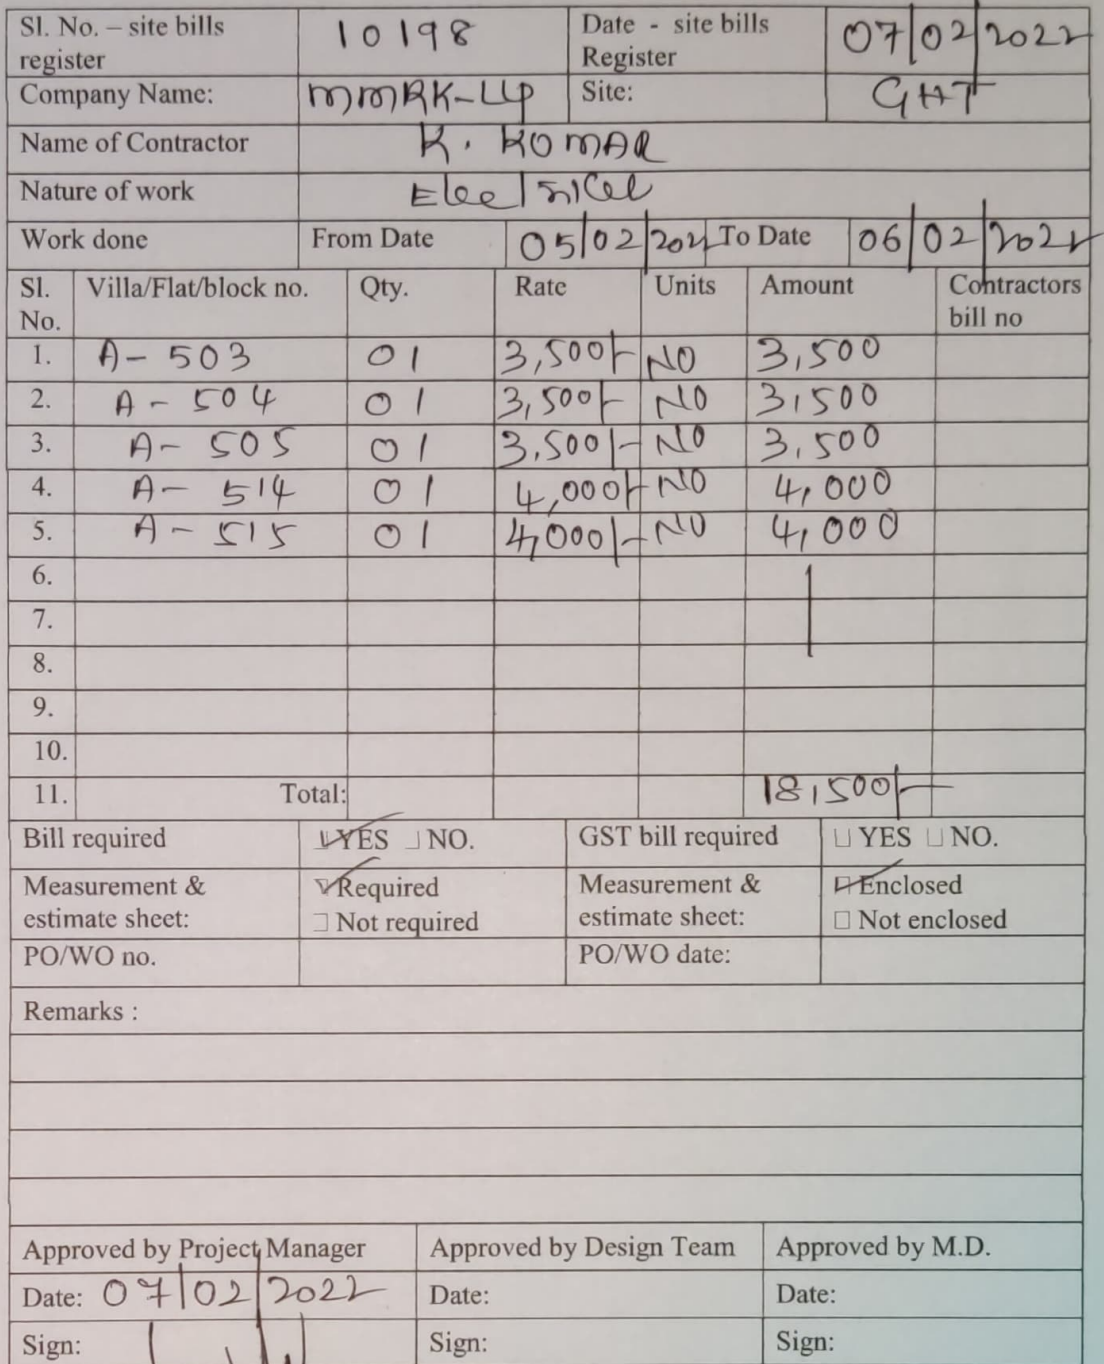 Sl. No. – site bills register 10198 Date - site bills Register 07/02/2022
Company Name: MMRK-LLP Site: GHT
Name of Contractor K. KOMAR
Nature of work Electrical
Work done From Date 05/02/2022 To Date 06/02/2022
Sl. No. Villa/Flat/block no. Qty. Rate Units Amount Contractors bill no
1. A- 503 01 3,500/- NO 3,500
2. A- 504 01 3,500/- NO 3,500
3. A- 505 01 3,500/- NO 3,500
4. A- 514 01 4,000/- NO 4,000
5. A- 515 01 4,000/- NO 4,000
6.
7.
8.
9.
10.
11. Total: 18,500/-
Bill required ☑ YES ☐ NO. GST bill required ☐ YES ☐ NO.
Measurement & estimate sheet: ☑ Required ☐ Not required Measurement & estimate sheet: ☑ Enclosed ☐ Not enclosed
PO/WO no. PO/WO date:
Remarks :
Approved by Project Manager Approved by Design Team Approved by M.D.
Date: 07/02/2022 Date: Date:
Sign: Sign: Sign: